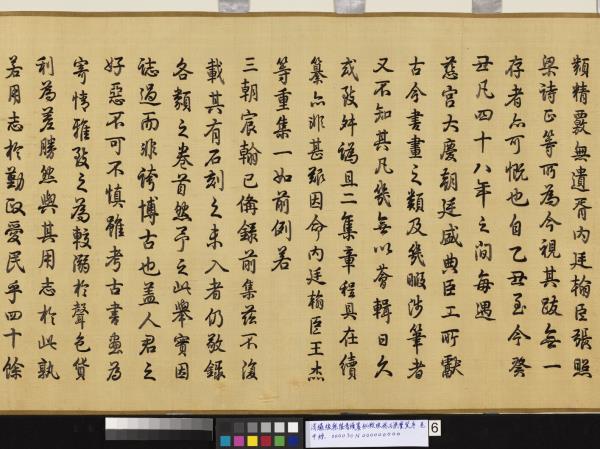 類精覈無遺胥內廷翰臣張照
梁詩正等所為今視其跋無一
存者亦可慨也自乙丑至今癸
丑凡四十八年之間每遇
慈宮大慶朝廷盛典臣工所獻
古今書畫之類及幾暇涉筆者
又不知其凡幾無以薈輯日久
或致舛譌且二集章程具在續
纂亦非甚難因命內廷翰臣王杰
等重集一如前例若
三朝宸翰已備錄前集茲不復
載其有石刻之未入者仍敬錄
各類之卷首然予之此舉實因
誌過而非誇博古也蓋人君之
好惡不可不慎雖考古書畫為
寄情雅致之為較溺於聲色貨
利為差勝然與其用志於此孰
若用志於勤政愛民乎四十餘
6